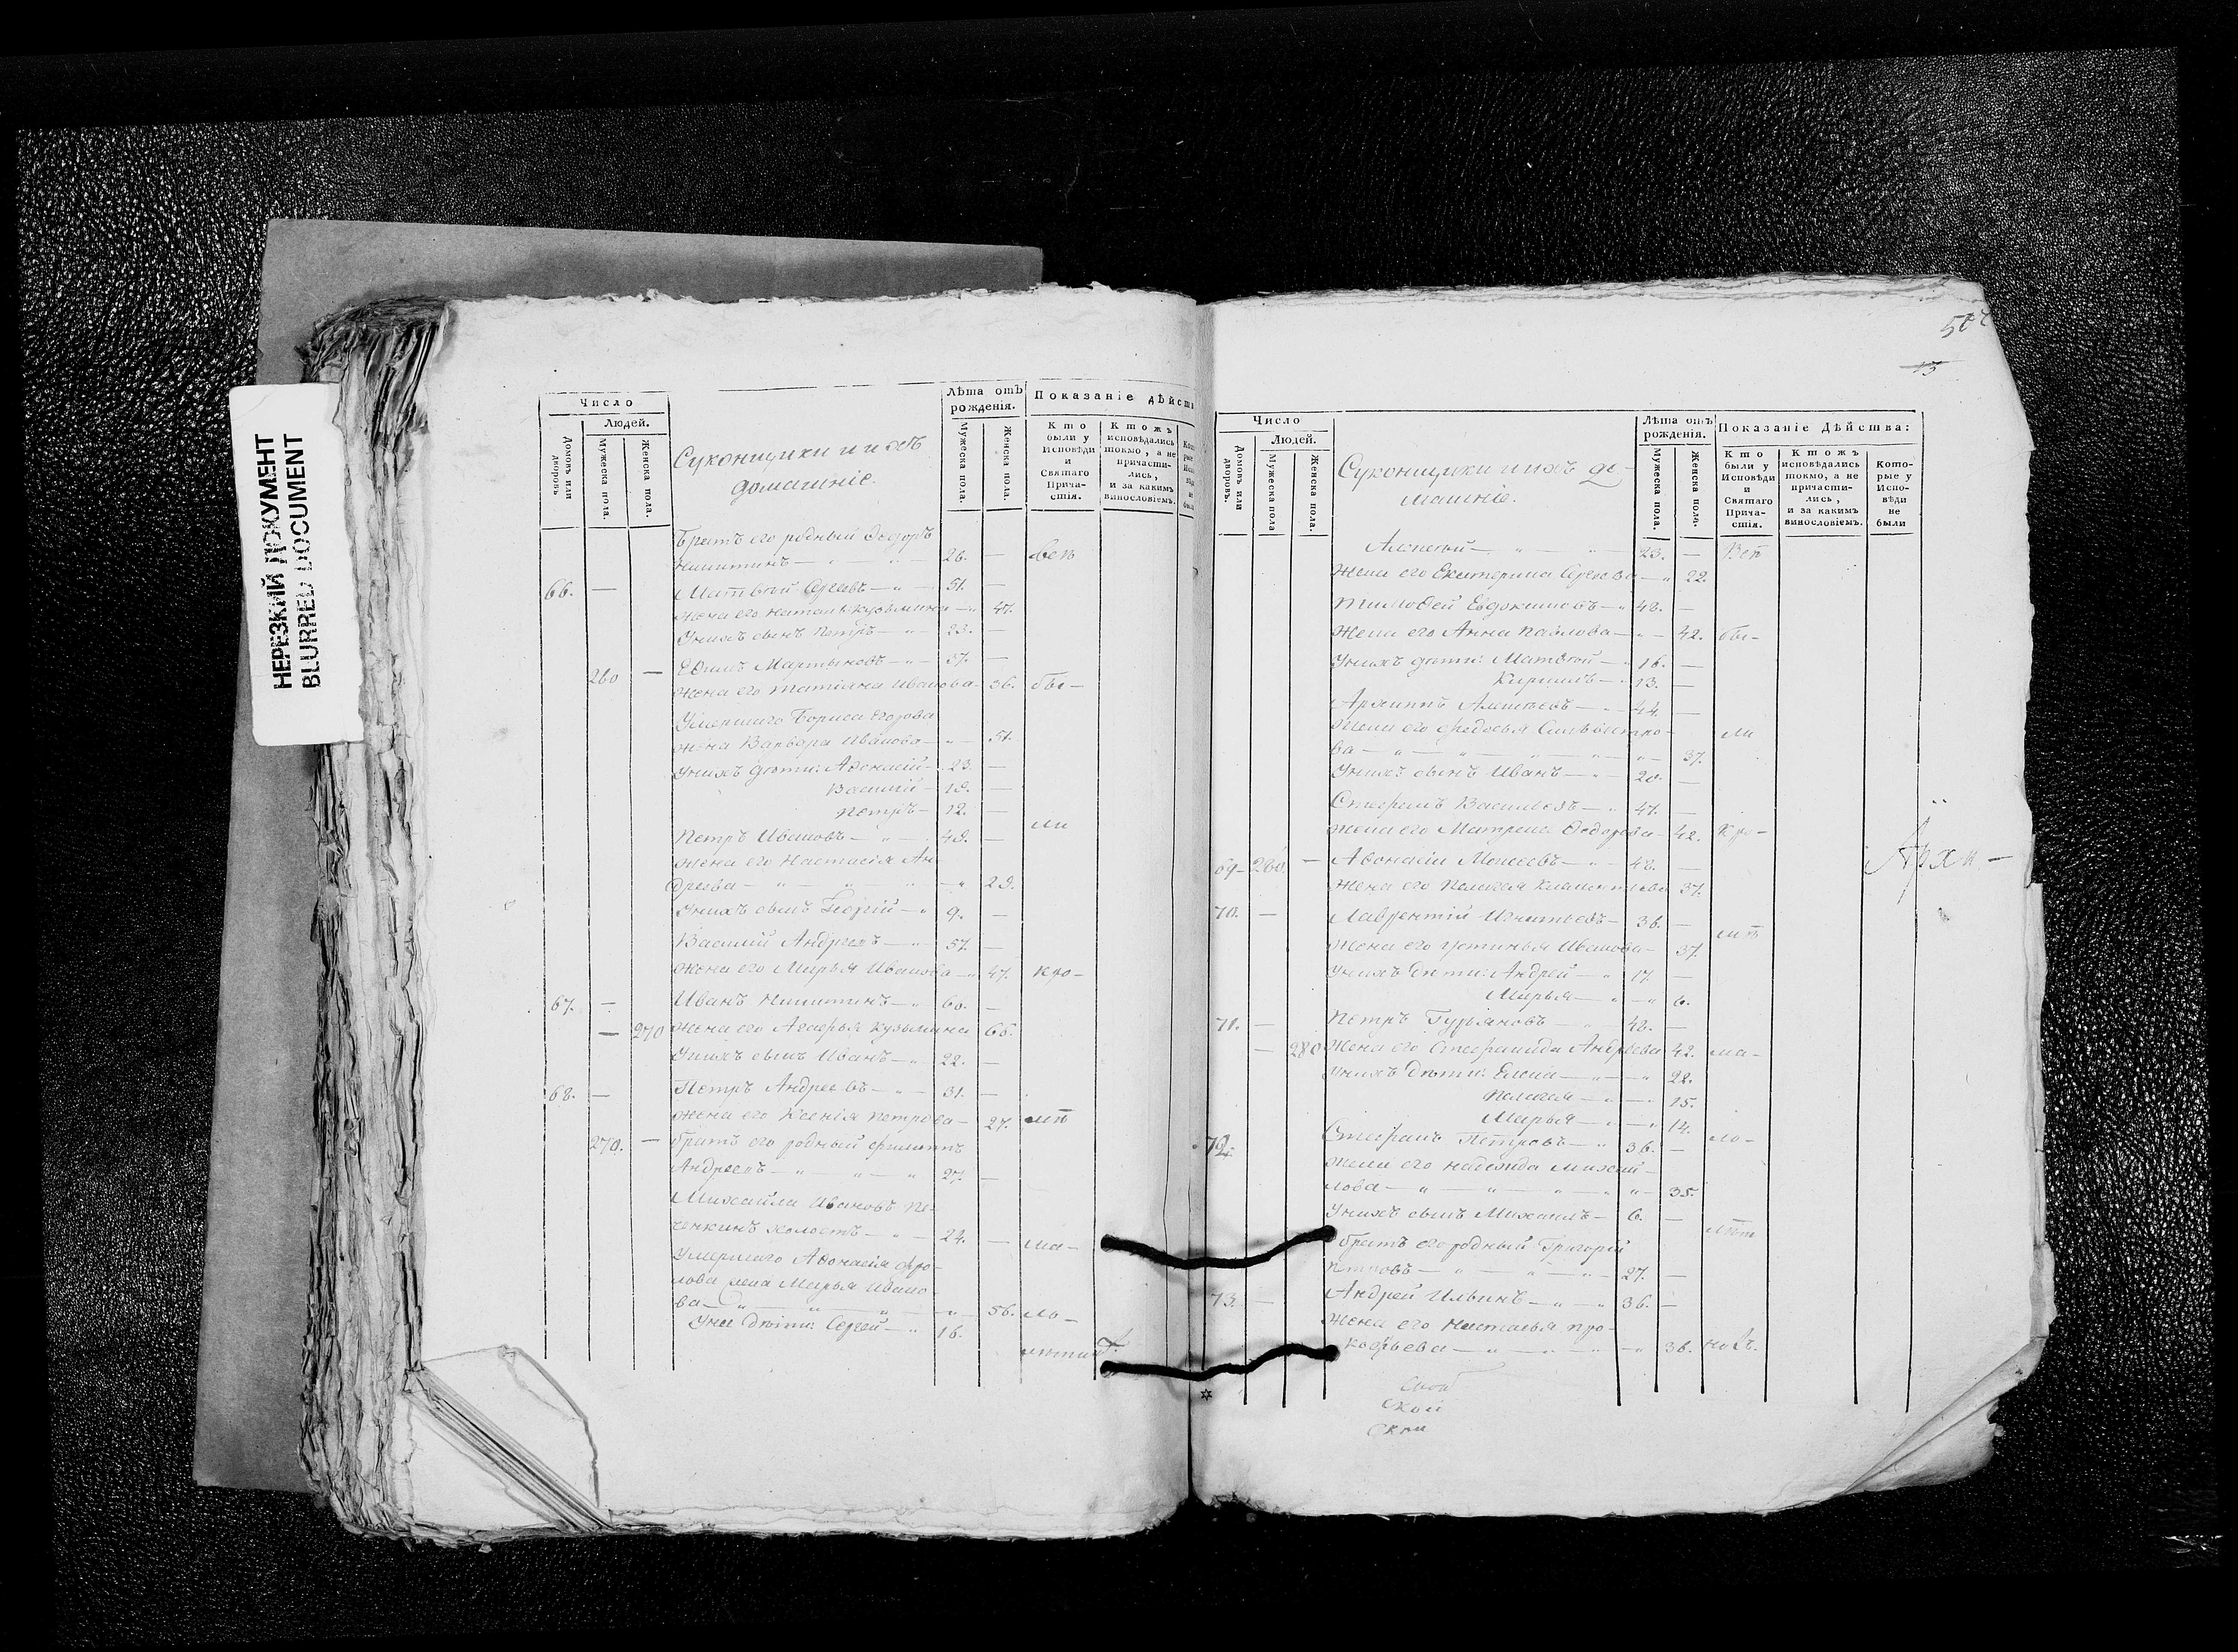 НЕРЕЗКИЙ ДОКУМЕНТ
BLURRED DOCUMENT
Число
Людей.
Домовъ или дворовъ
Мужеска пола.
Женска пола.
Суконщики и ихъ
домашніе.
Лѣта отъ
рожденія.
Мужеска пола.
Женска пола.
Показаніе дѣйств
Кто
были у
Исповѣди
и
Святаго
Прича-
стія.
Ктожъ
исповѣдались
токмо, а не
причасти-
лись,
и за какимъ
винословіемъ.
Братъ его родный Ѳедоръ
Никитинъ — " — " — 26. —
66. — Матвей Сергѣевъ — " — 51. —
Жена его Наталья Кузьмина — " 47.
У нихъ сынъ Петръ — " — 23.
Ефимъ Мартыновъ — " — 37. —
260 — Жена его Татіана Иванова — 36. бы —
Умершаго Бориса Егорова
жена Варвара Иванова — " — 51.
У нихъ дѣти: Афонасій — 23. —
Василій — 19. —
Петръ — 12. —
ли
Петръ Ивановъ — " — 49. —
Жена его Настасія Ан-
дреева — " — " — " — " 29.
У нихъ сынъ Георгій — " 9. —
Василій Андреевъ — " 57. —
Жена его Марья Иванова — " 47. Кро —
67. — Иванъ Никитинъ — " 60. —
— 270 Жена его Агафья Кузьмина 65.
У нихъ сынъ Иванъ — " 22. —
68. — Петръ Андреевъ — " — 31. —
Жена его Ксенія Петрова — 27.
270. — братъ его родный Филиппъ
Андреевъ — " — " — " 27. —
Михайла Ивановъ Пе-
ченкинъ холостъ — " — 24. — ма —
Умершаго Афонасія Фро-
лова жена Марья Ивано-
ва — " — " — " — " — 56. ло —
У нее дѣти: Сергей — " 16.
502
13
Число
Людей.
Домовъ или дворовъ.
Мужеска пола
Женска пола.
Суконщики и ихъ до-
машніе.
Лѣта отъ
рожденія.
Мужеска пола.
Женска пола.
Показаніе Дѣйства:
Кто
были у
Исповѣди
и
Святаго
Прича-
стія.
Ктожъ
исповѣдались
токмо, а не
причасти-
лись,
и за какимъ
винословіемъ.
Кото-
рые у
Испо-
вѣди
не
были
Алексей — " — " — 23. —
Жена его Екатерина Сергеева — " 22.
Тимофей Евдокимовъ — " 48. —
Жена его Анна Павлова — " — 42. бы —
У нихъ дѣти: Матвей — " 16. —
Кирилъ — " 13. —
Архипъ Алексѣевъ — " 44. —
Жена его Федосья Сильвестро-
ли
ва — " — " — " — " — " — 37.
У нихъ сынъ Иванъ — " — 20. —
Стефанъ Васильевъ — " 47. —
Жена его Матрена Ѳедорова — 42. Кро —
Архи —
69 — 280. — Афонасій Моисеевъ — " — 48. —
Жена его Пелагея Клементьева 37.
70. — Лаврентій Игнатьевъ — 36. —
Жена его Устинья Иванова — 37.
У нихъ дѣти: Андрей — " 17. —
Марья — " — " 6.
71. — Петръ Гурьяновъ — " 42. —
— 280 Жена его Стефанида Андреева 42. ма —
У нихъ дѣти: Елена — " — " 22.
Пелагея — " — 15.
Марья — " — " 14.
ло —
72. Стефанъ Петровъ — " 36. —
Жена его Надежда Михай-
лова — " — " — " — " — 35.
У нихъ сынъ Михаилъ — 6. —
братъ его родный Григорей
Петровъ — " — " — " — 27. —
73. — Андрей Ильинъ — " — " 36. —
Жена его Наталья Про-
кофьева — " — " — " — " 36.
ской